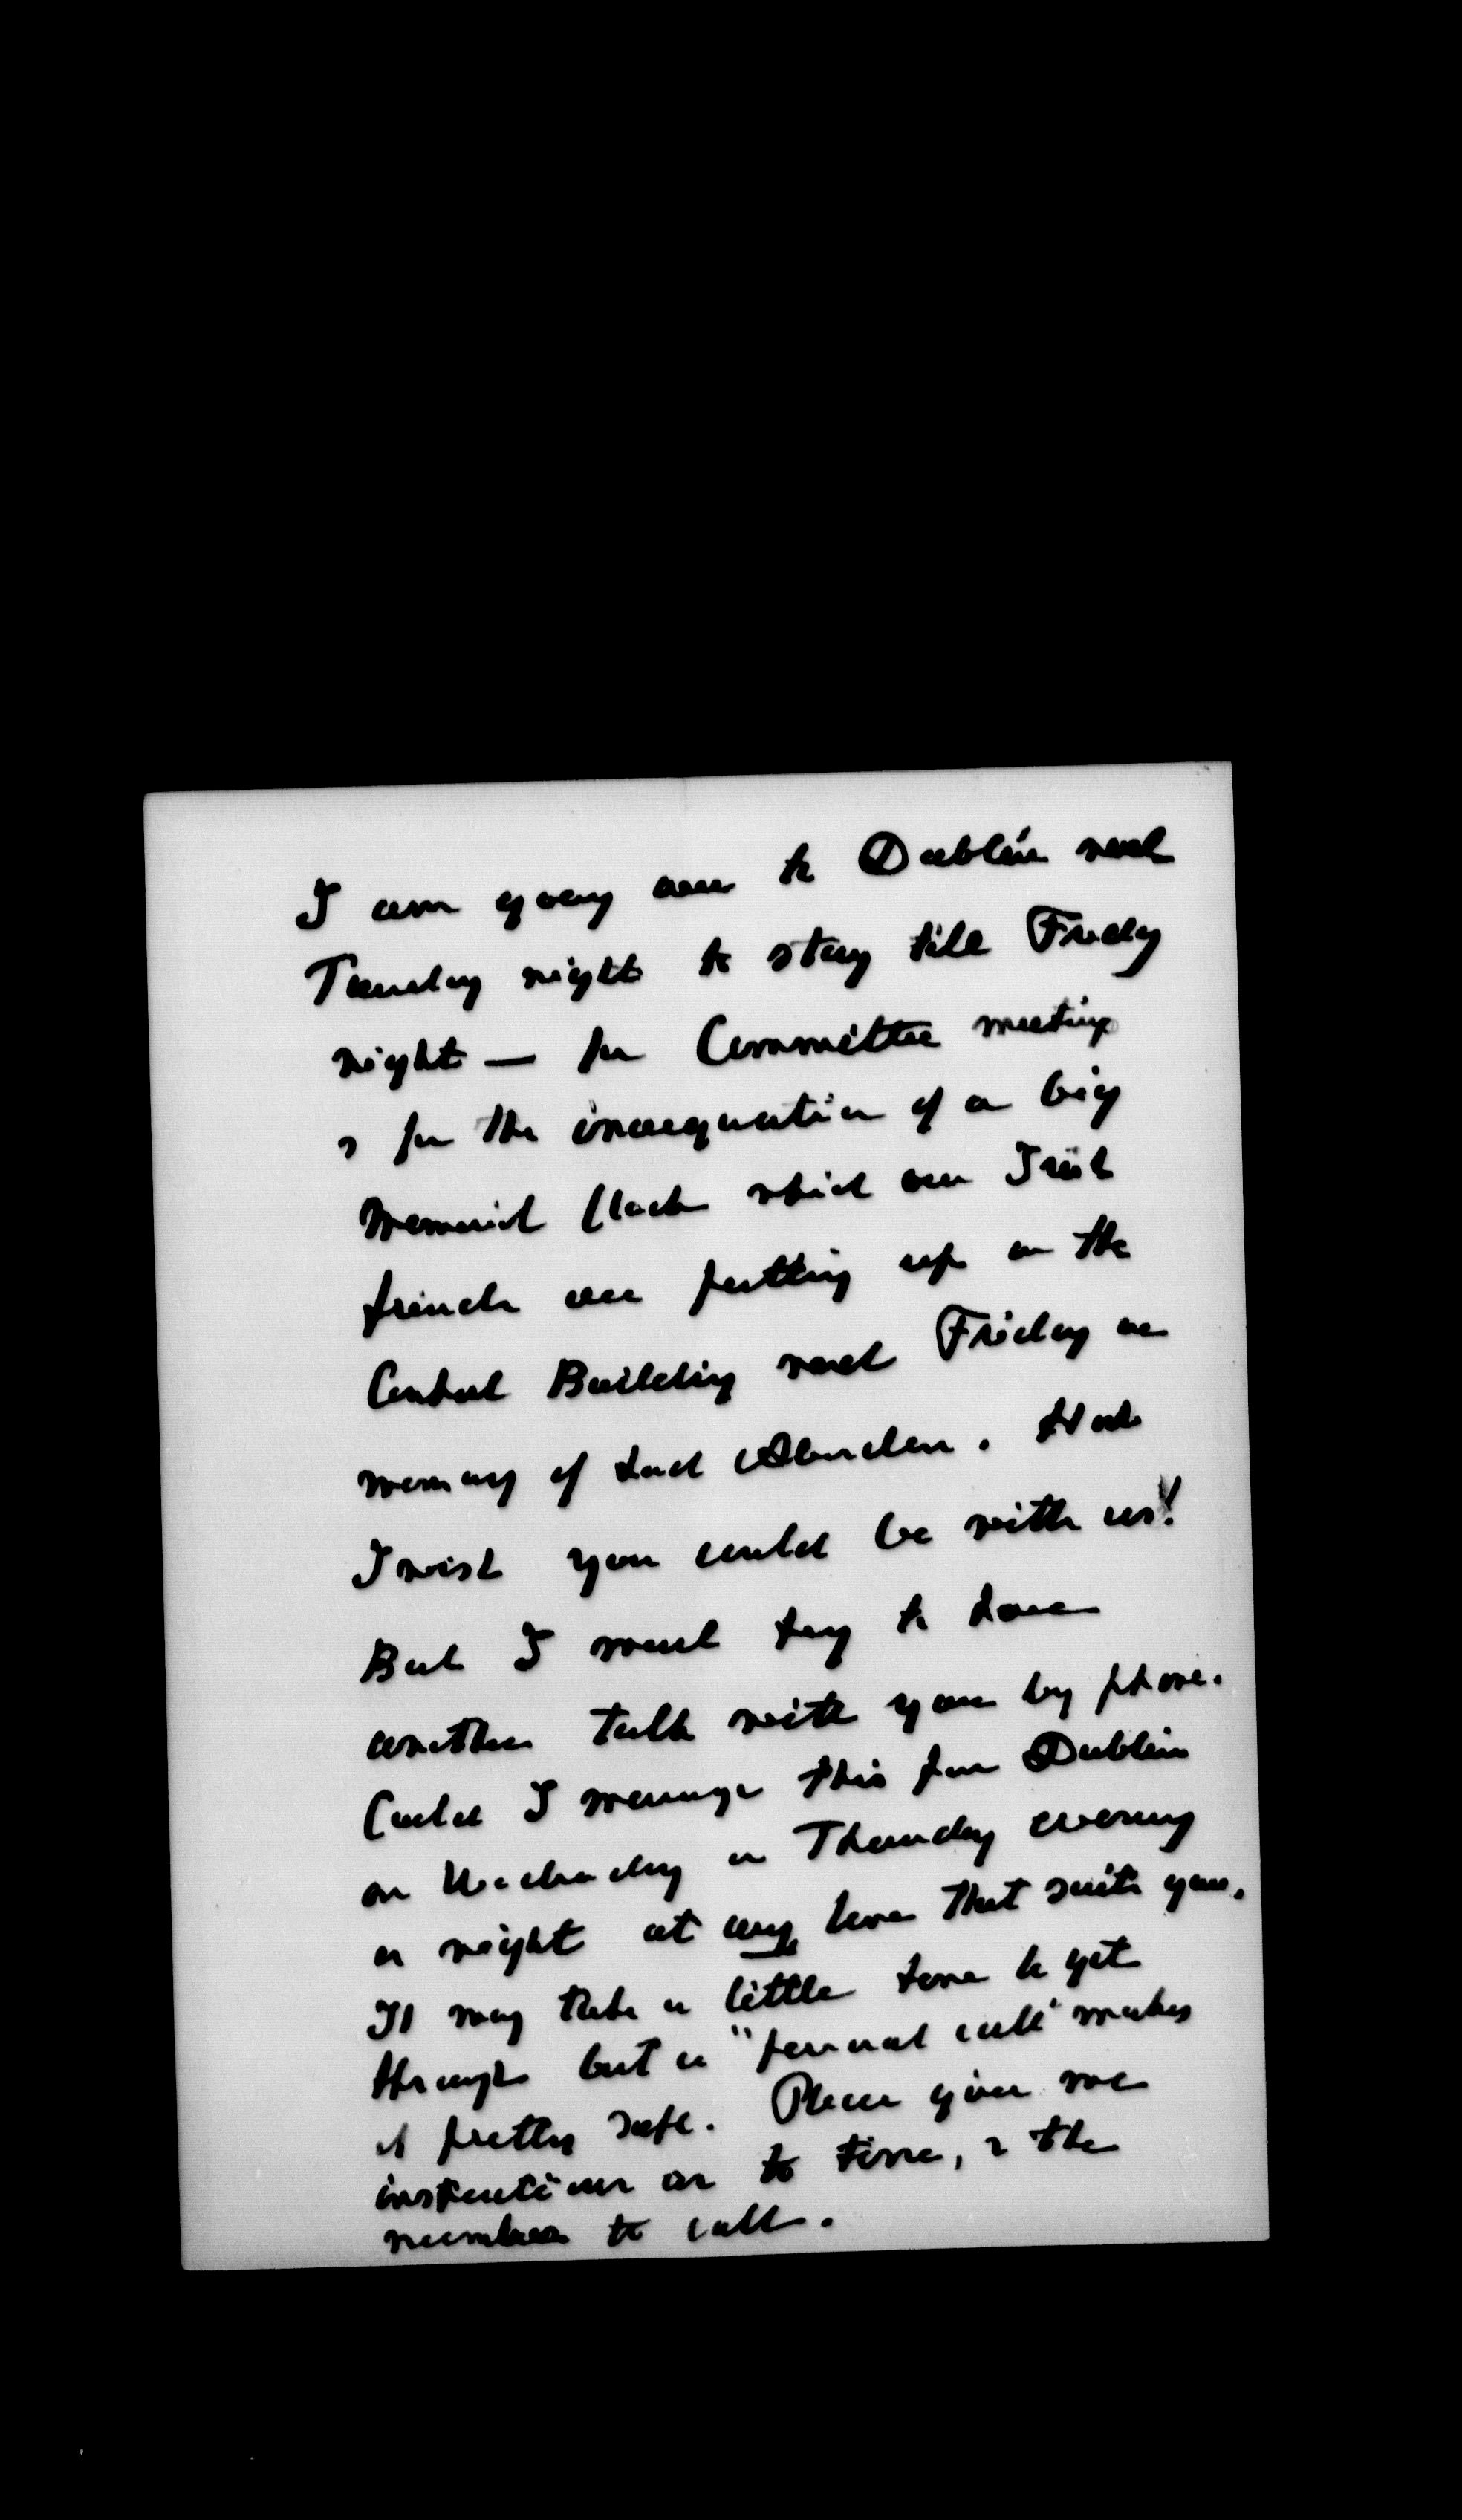 I am going over to Dublin next
Tuesday night to stay till Friday
night — for Committee meetings
& for the inauguration of a big
Memorial Clock which our Irish
friends are putting up on the
Central Building next Friday in
memory of Lord Aberdeen. How
I wish you could be with us!
But I must try to have
another talk with you by phone.
Could I manage this from Dublin
on Wednesday or Thursday evening
or night at any hour that suits you.
It may take a little time to get
through but a "personal call" makes
it pretty safe. Please give me
instructions as to time, & the
number to call.